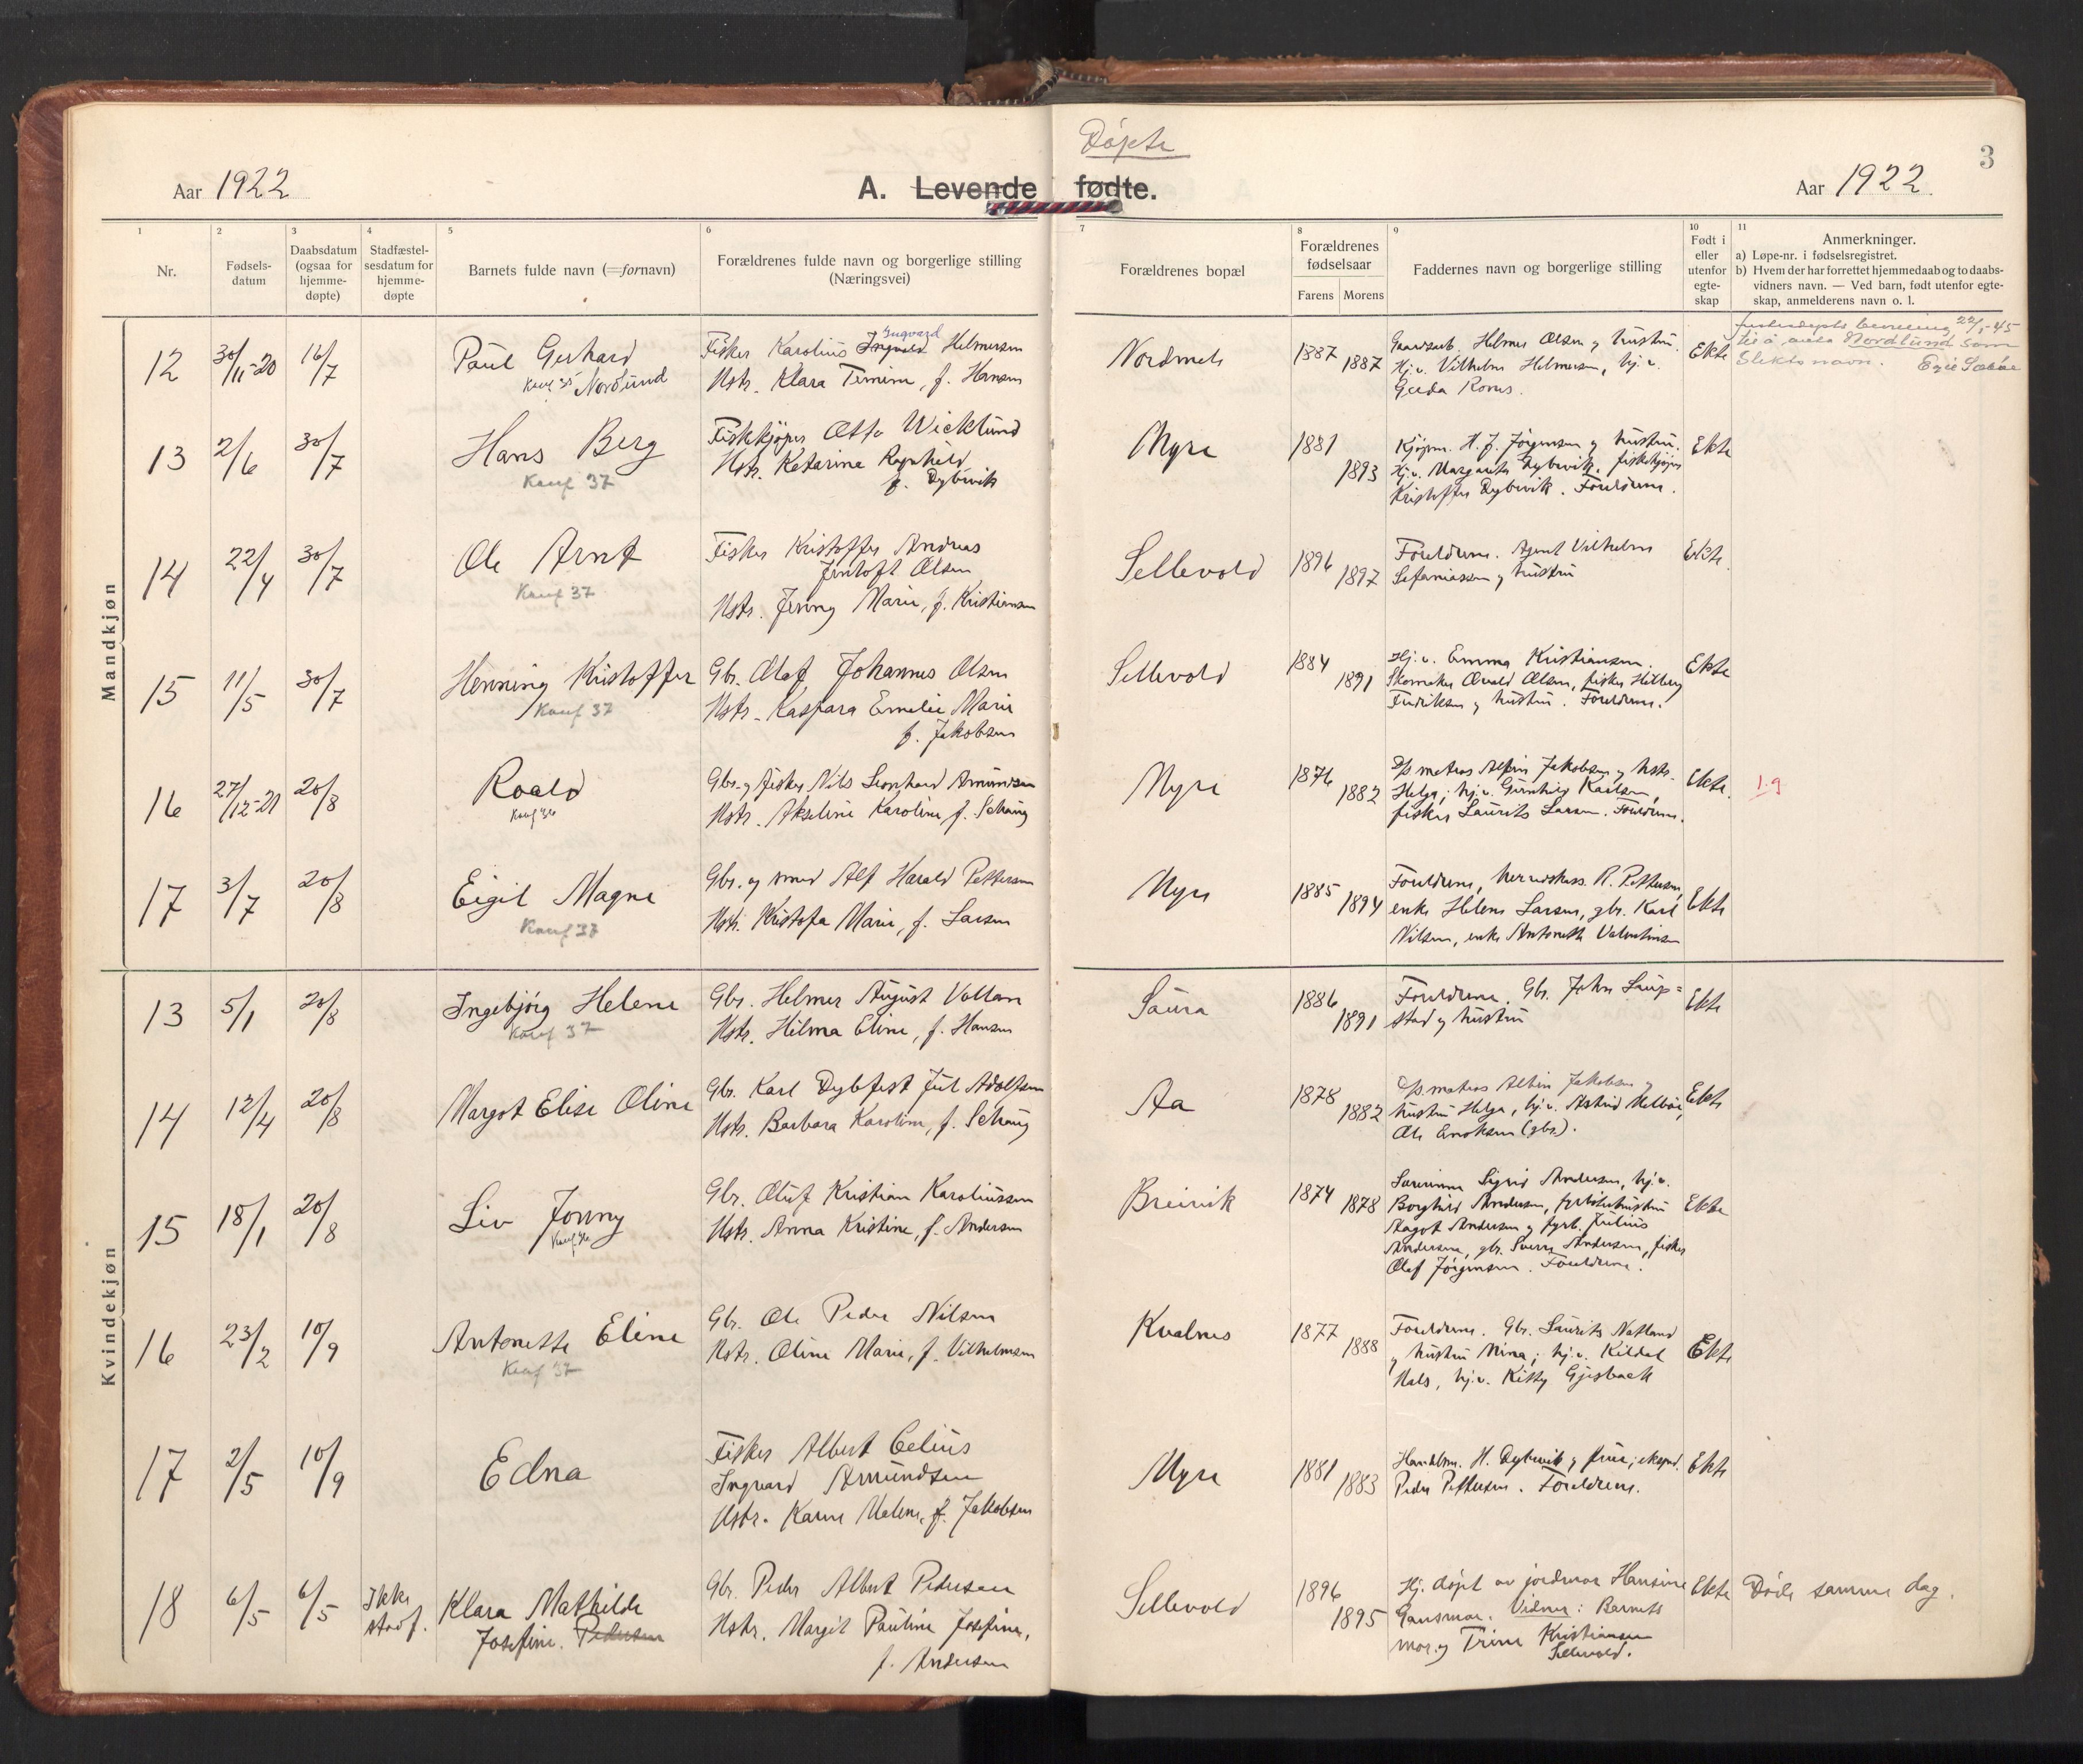 Døpte
3
Aar 1922
A. Levende fødte.
Aar 1922.
1 2 3 4 5 6 7 8 9 10 11
Nr.
Fødsels-
datum
Daabsdatum
(ogsaa for
hjemme-
døpte)
Stadfæstel-
sesdatum for
hjemme-
døpte
Barnets fulde navn (=fornavn)
Forældrenes fulde navn og borgerlige stilling
(Næringsvei)
Forældrenes bopæl
Forældrenes
fødselsaar
Farens Morens
Faddernes navn og borgerlige stilling
Født i
eller
utenfor
egte-
skap
Anmerkninger.
a) Løpe-nr. i fødselsregistret.
b) Hvem der har forrettet hjemmedaab og to daabs-
vidners navn. — Ved barn, født utenfor egte-
skap, anmelderens navn o. l.
Mandkjøn
12 30/11-20 16/7
Paul Gerhard
Konf 35 Nordlund
Ingvard
Fisker Karolius Ingvald Helmersen
Hstr. Klara Timine, f. Hansen
Nordmela
1887 1887
Gaardarb. Helmer Olsen og hustru.
Hj.v. Vilhelm Helmersen, hj.v.
Gerda Rones.
Ekte
bevilling 22/1-45
til å anta Nordlund som
Slektsnavn.
13 2/6 30/7
Hans Berg
Konf 37
Fiskekjøper Otto Wicklund
Hstr. Katarina Ragnhild
f. Dybvik
Myre
1881 1893
Kjøpm. H. J. Jørgensen og hustru,
Hj.v. Margareth Dybvik, fiskekjøper
Kristoffer Dybvik. Foreldrene.
Ekte
14 22/4 30/7
Ole Arnt
Konf 37
Fisker Kristoffer Andreas
Jentoft Olsen
Hstr. Jenny Marie, f. Kristiansen
Sellevold
1896 1897
Foreldrene. Agent Vilhelm
Sefaniassen og hustru
Ekte.
15 11/5 30/7
Henning Kristoffer
Konf 37
Gbr. Olaf Johannes Olsen
Hstr. Kaspara Emelie Marie
f. Jakobsen
Sellevold
1884 1891
Hj.v. Emma Kristiansen.
Skomaker Olsen, fisker Hilberg
Fredriksen og hustru. Foreldrene.
Ekte
16 27/12-21 20/8
Roald
Konf 36
Gbr. og fisker Nils Leonhard Amundsen
Hstr. Akseline Karoline, f. Schaug
Myre
1876 1882
D/s matros Alfin Jakobsen og hstr.
Helga; hj.v. Gunhild Karlsen,
fisker Laurits Larsen. Foreldrene.
Ekte.
1.9
17 3/7 20/8
Eigil Magne
Konf 37
Gbr. og smed Alf Harald Pettersen
Hstr. Kristofa Marie, f. Larsen
Myre
1885 1894
Foreldrene, herredskass. R. Pettersen,
enke Helene Larsen, gbr. Karl
Nilsen, enke Antonette Valentinsen
Ekte
Kvindekjøn
13 5/1 20/8
Ingebjørg Helene
Konf 37
Gbr. Helmer August Vollan
Hstr. Hilma Eline, f. Hansen
Saura
1886 1891
Foreldrene. Gbr. John Laup=
stad og hustru
Ekte
14 12/4 20/8
Margot Elise Oline
Gbr. Karl Dybfest Jul Adolfsen
Hstr. Barbara Karoline, f. Schaug
Aa
1878 1882
D/s matros Albin Jakobsen og
hustru Helga, hj.v. Astrid Melbøe,
Ole Enoksen (gbr.).
Ekte
15 18/1 20/8
Liv Jonny
Konf 36
Gbr. Oluf Kristian Karoliussen
Hstr. Anna Kristine, f. Andersen
Breivik
1874 1878
Sigrid Andersen, hj.v.
Borghild Andersen, fyrbøterhustru
Aagot Andersen og fyrb. Julius
Andersen, gbr. Sverre Andersen, fisker
Olaf Jørgensen. Foreldrene.
Ekte
16 23/2 10/9
Antonette Eline
Konf 37
Gbr. Ole Peder Nilsen
Hstr. Oline Marie, f. Vilhelmsen
Kvalnes
1877 1888
Foreldrene. Gbr. Laurits Natland
og hustru Mina; hj.v. Kildal
Hals, hj.v. Kitty Gjisbakk
Ekte
17 2/5 10/9
Edna
Fisker Albert Celius
Ingvard Amundsen
Hstr. Karen Malene, f. Jakobsen
Myre
1881 1883
Handelsm. H. Dybvik og frue; eksped.
Peder Pettersen. Foreldrene.
Ekte
18 6/5 6/5
Ikke
stadf.
Klara Mathilde
Josefine. Pedersen
Gbr. Peder Albert Pedersen
Hstr. Margit Pauline Josefine,
f. Andersen
Sellevold
1896 1895
Hj. døpt av jordmor Hansine
Gausmar. Vidner: Barnets
mor og Trine Kristiansen
Sellevold.
Ekte
Døde samme dag.